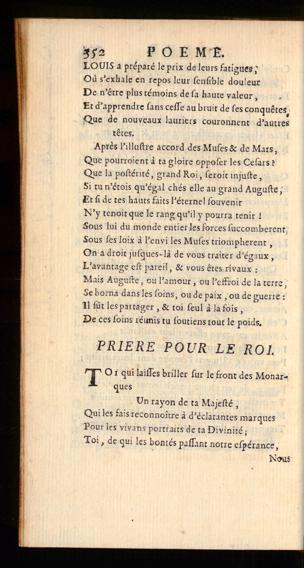 352 POEME.
LOUIS a préparé le prix de leurs fatigues,
Où s'exhale en repos leur sensible douleur
De n'être plus témoins de sa haute valeur,
Et d'apprendre sans cesse au bruit de ses conquêtes
Que de nouveaux lauriers couronnent d'autres
têtes.
Après l'illustre accord des Muses & de Mars,
Que pourroient à ta gloire opposer les Cesars ?
Que la postérité, grand Roi, seroit injuste,
Si tu n'étois qu'égal chés elle au grand Auguste,
Et si de tes hauts faits l'éternel souvenir
N'y tenoit que le rang qu'il y pourra tenir !
Sous lui du monde entier les forces succomberent,
Sous ses loix à l'envi les Muses triompherent,
On a droit jusques-là de vous traiter d'égaux,
L'avantage est pareil, & vous êtes rivaux :
Mais Auguste, ou l'amour, ou l'effroi de la terre,
Se borna dans les soins, ou de paix, ou de guerre :
Il sût les partager, & toi seul à la fois,
De ces soins réunis tu soutiens tout le poids.
PRIERE POUR LE ROI.
TOI qui laisses briller sur le front des Monar-
ques
Un rayon de ta Majesté,
Qui les fais reconnoître à d'éclatantes marques
Pour les vivans portraits de ta Divinité;
Toi, de qui les bontés passant notre espérance,
Nous